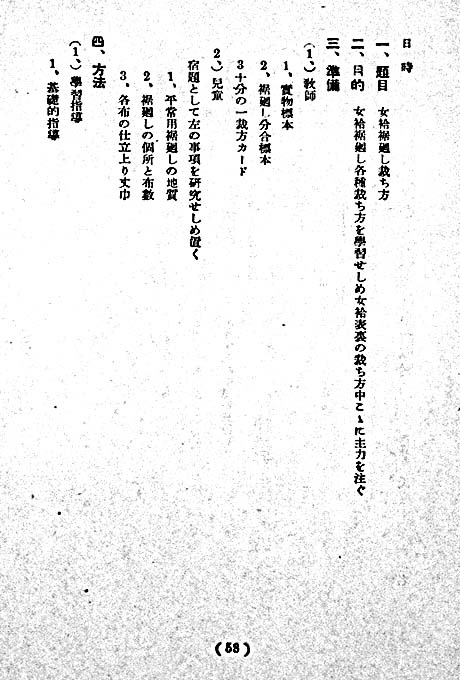 日時
一、題目　女袷裾廻し裁ち方
二、目的　女袷裾廻し各種裁ち方を學習せしめ女袷表裏の裁ち方中こゝに主力を注ぐ
三、準備
(1、)教師
1、實物標本
2、裾廻し分合標本
3十分の一裁方カード
2、)兒童
宿題として左の事項を研究せしめ置く
1、平常用裾廻しの地質
2、裾廻しの個所と布數
3、各布の仕立上り丈巾
四、方法
(1、)學習指導
1、基礎的指導
(53)